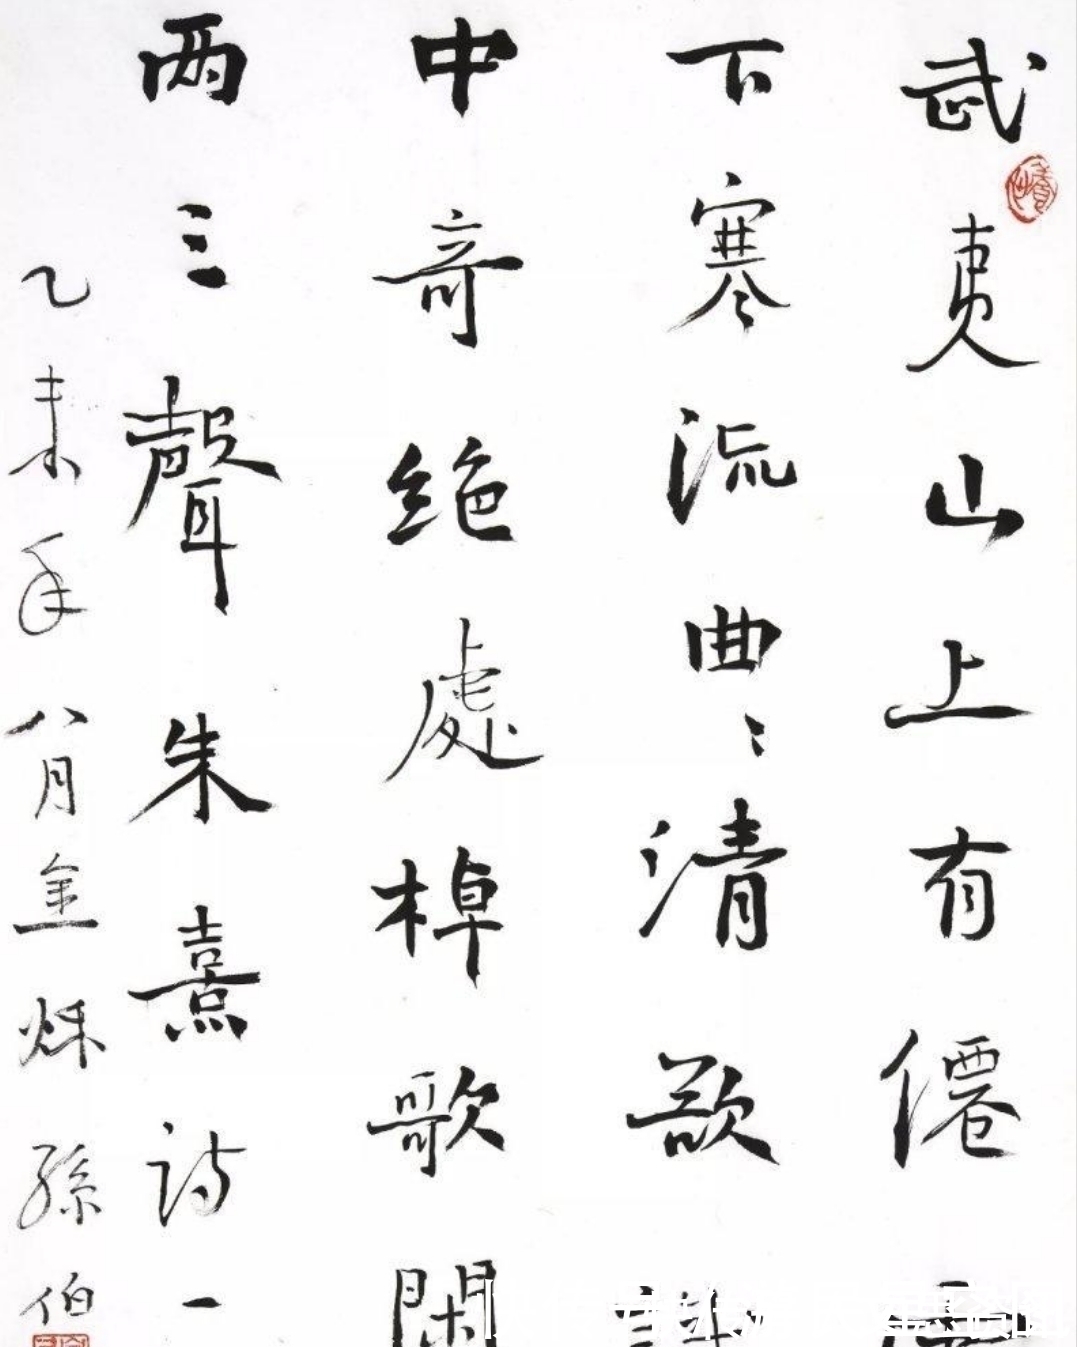 武夷山上有僊
下寒流曲〻清欲
中奇绝處棹歌閑
两三聲朱熹詩一
乙未年八月金秌孫伯